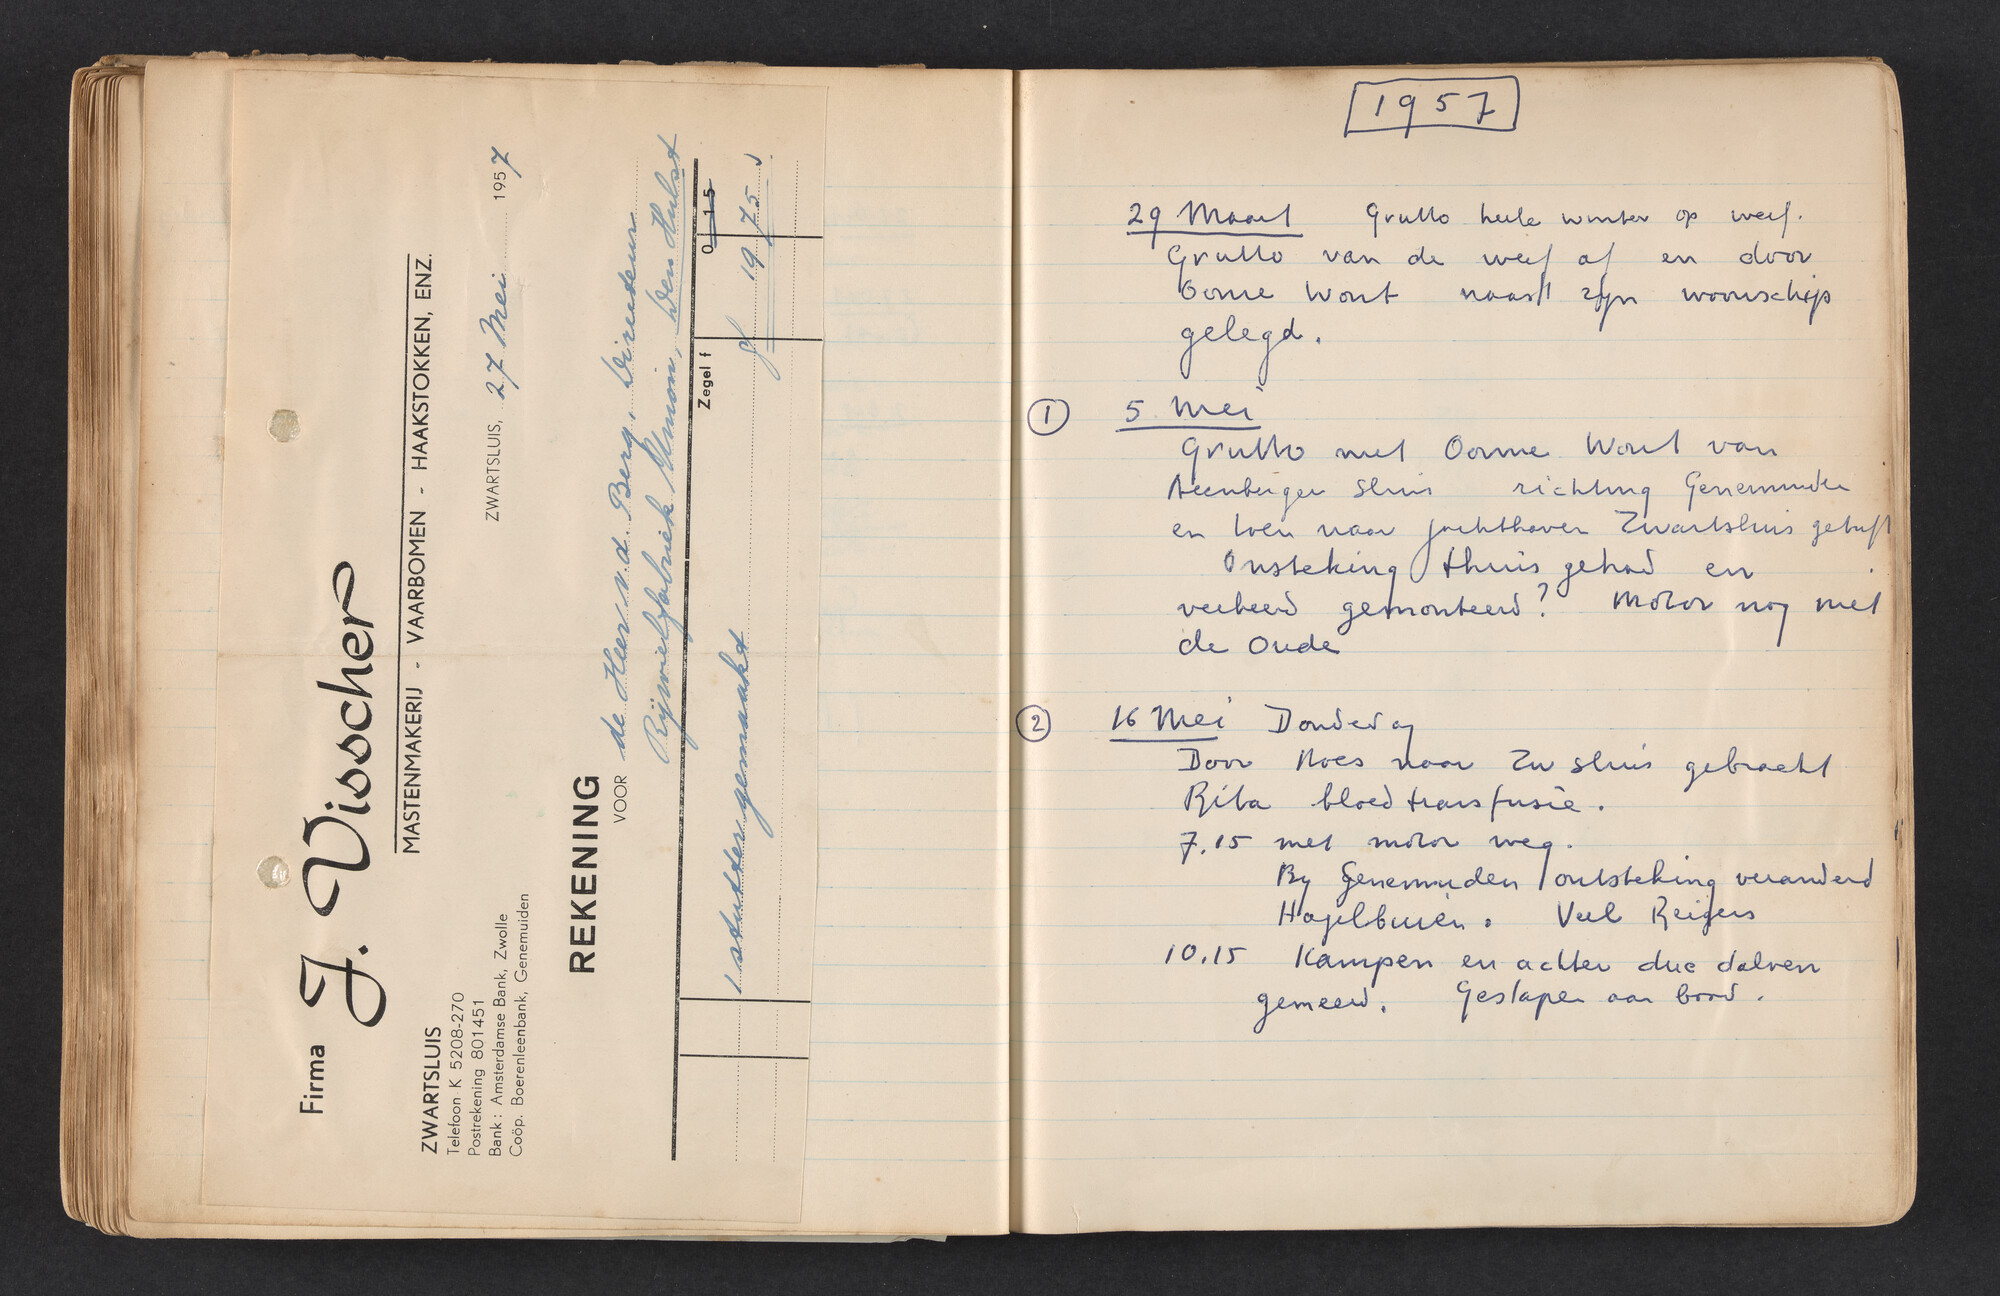 Firma J. Visscher
MASTENMAKERIJ - VAARBOMEN - HAAKSTOKKEN, ENZ.
ZWARTSLUIS
Telefoon K 5208-270
Postrekening 801451
Bank: Amsterdamse Bank, Zwolle
Coöp. Boerenleenbank, Genemuiden
ZWARTSLUIS, 27 Mei 1957
REKENING
VOOR de Heer v.d. Berg, Directeur
Rijwielfabriek Union, Den Hulst
Zegel f 0 15
1 stutter gemaakt f 19 75
1957
29 Maart Grutto hele winter op werf.
Grutto van de werf af en door
Oome Wout naast zijn woonschip
gelegd.
1 5 Mei
Grutto met Oome Wout van
sluis richting Genemuiden
en toen naar jachthaven Zwartsluis getuft
Onsteking thuis gehad en
verkeerd gemonteerd? Motor nog met
de oude
2 16 Mei Donderdag
Door Koes naar Zw sluis gebracht
Rita bloedtransfusie.
7.15 met motor weg.
By Genemuiden ontsteking veranderd
Hagelbuien. Veel Reigers
10.15 Kampen en achter duc dalven
gemeerd. Geslapen aan boord.